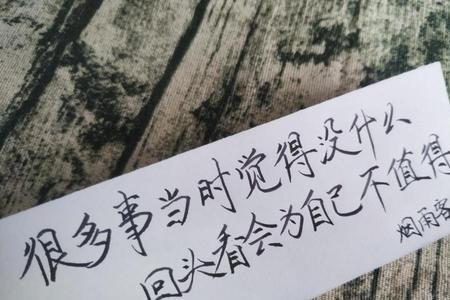 很多事当时觉得没什么
回头看会为自己不值得
烟雨客